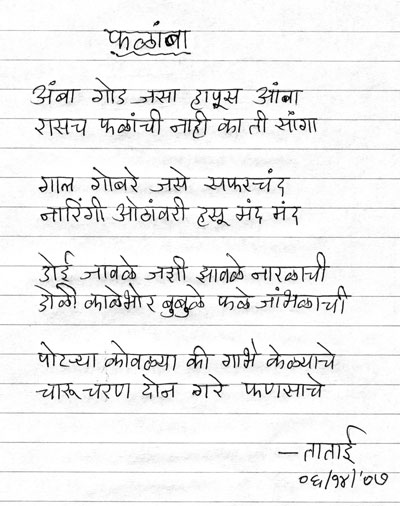 फळांबा
अंबा गोड जसा हापूस आंबा
रासच फळांची नाही का ती सांगा
गाल गोबरे जसे सफरचंद
नारिंगी ओठांवरी हसू मंद मंद
डोई जावळे जशी झावळे नारळाची
डोळे काळेभोर बुबुळे फळे जांभळाची
पोटऱ्या कोवळ्या की गाभे केळ्याचे
चारू चरण दोन गरे फणसाचे
—ताताई
०६/१४/'०७